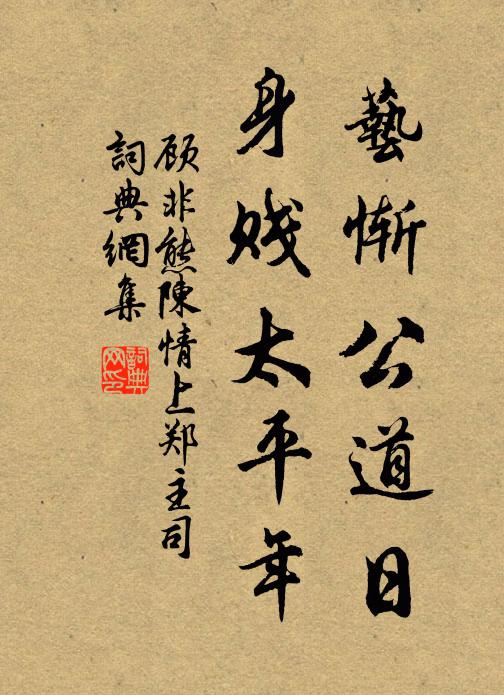 藝慚公道日
身賤太平年
顾非熊陳情上郑主司
詞典網集
詞典网印